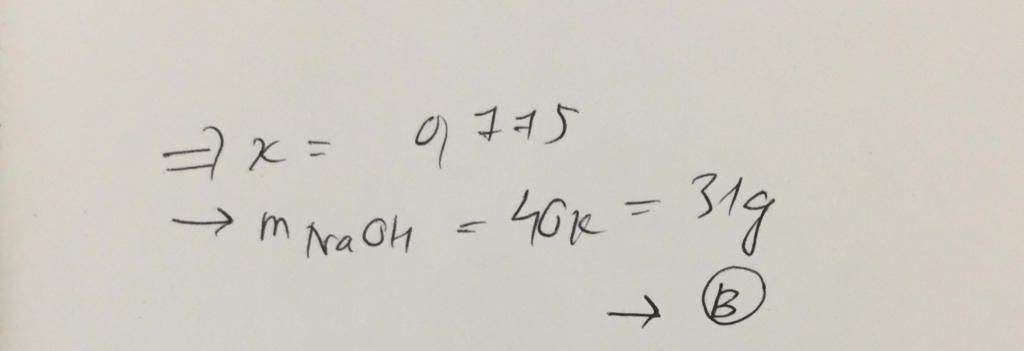 ⇒ x = 0,775
→ m NaOH = 40x = 31g
→ B